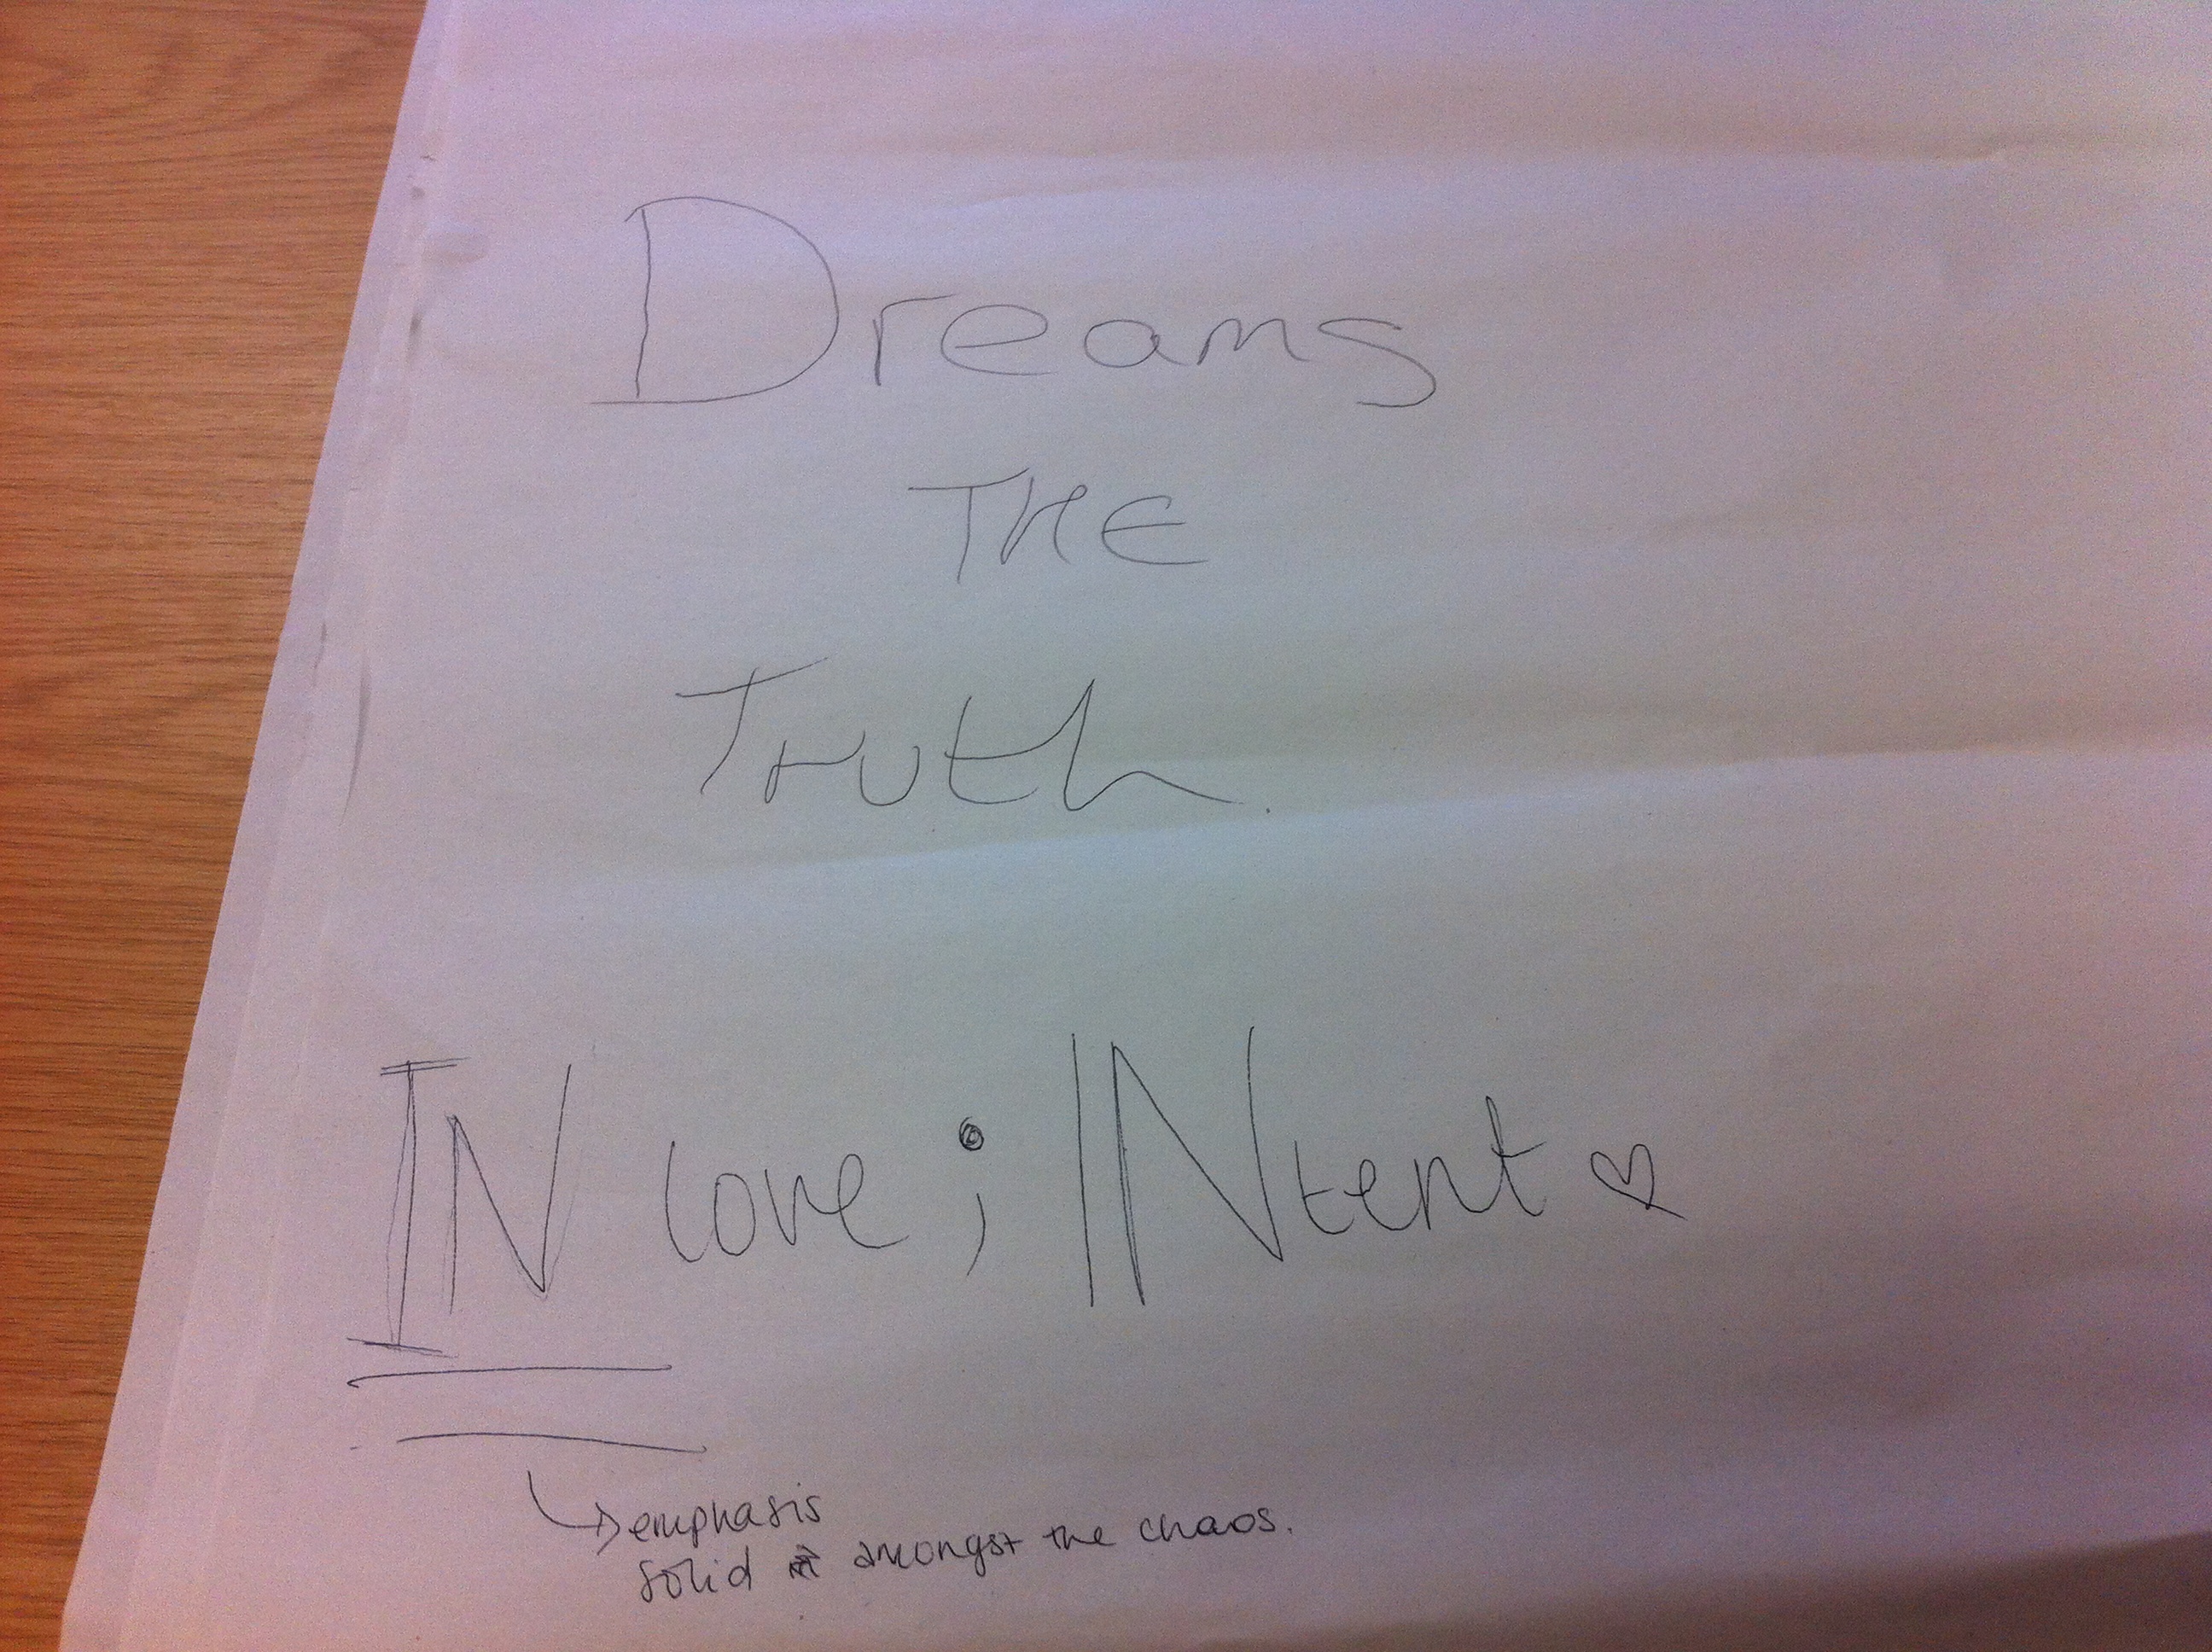 Dreams
THE
Truth.
IN love ; INtent ♡
emphasis
solid amongst the chaos.